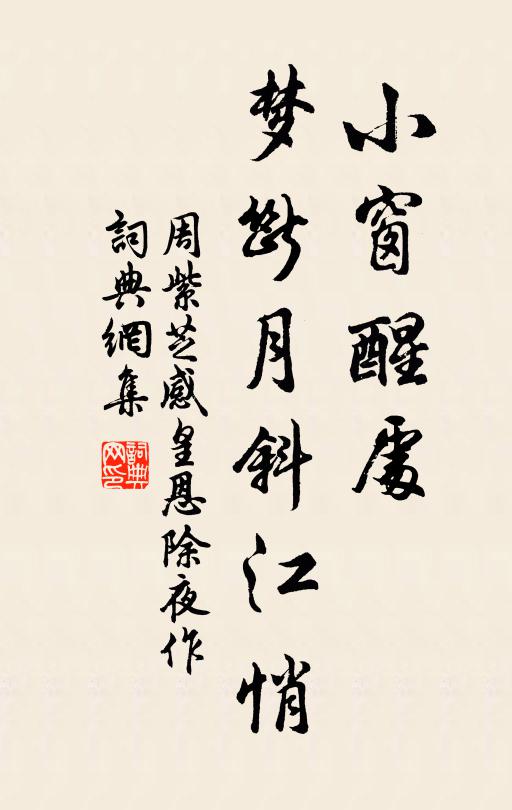 小窗醒處
梦斷月斜江悄
周紫芝感皇恩除夜作
詞典網集
詞典網印